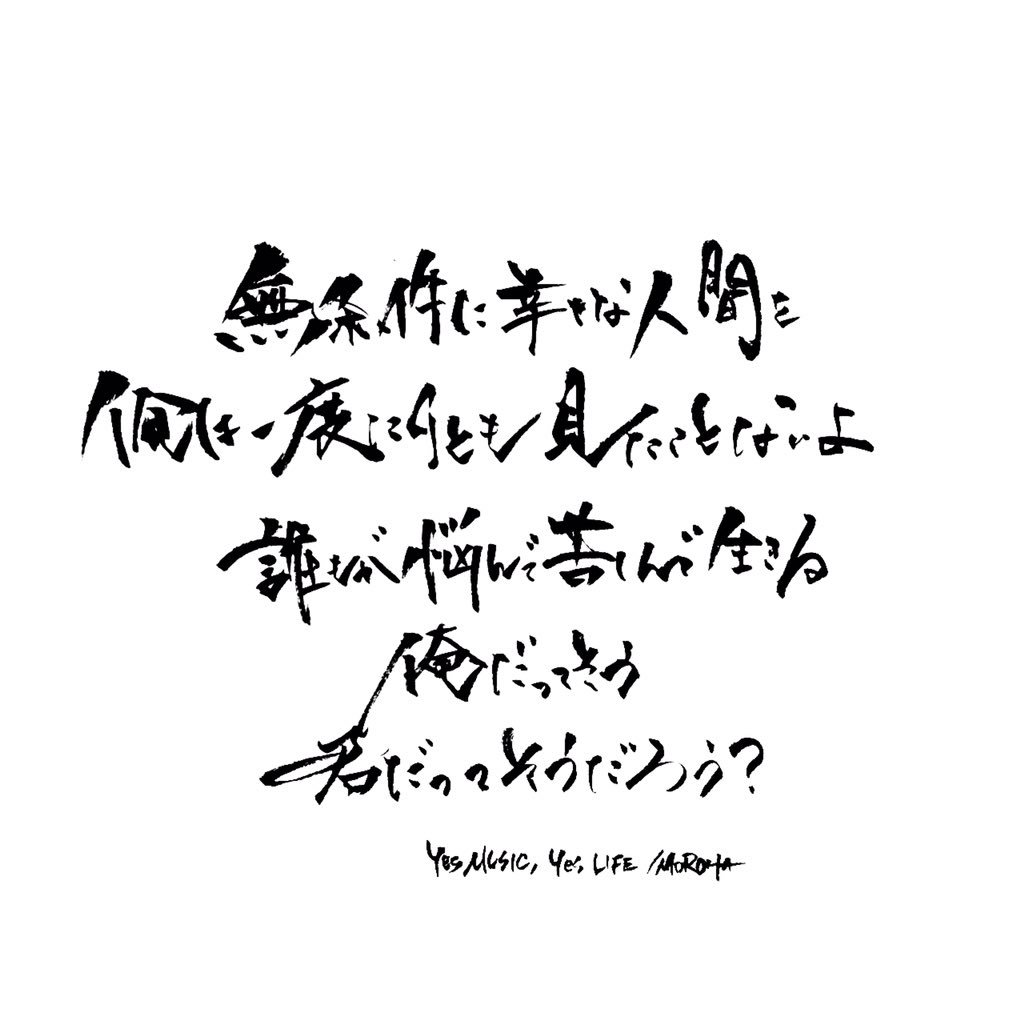 無条件に幸せな人間を
俺は一度たりとも見たことないよ
誰もが悩んで苦しんで生きる
俺だってそう
君だってそうだろう?
YES MUSIC, Yes, LIFE / MOROHA